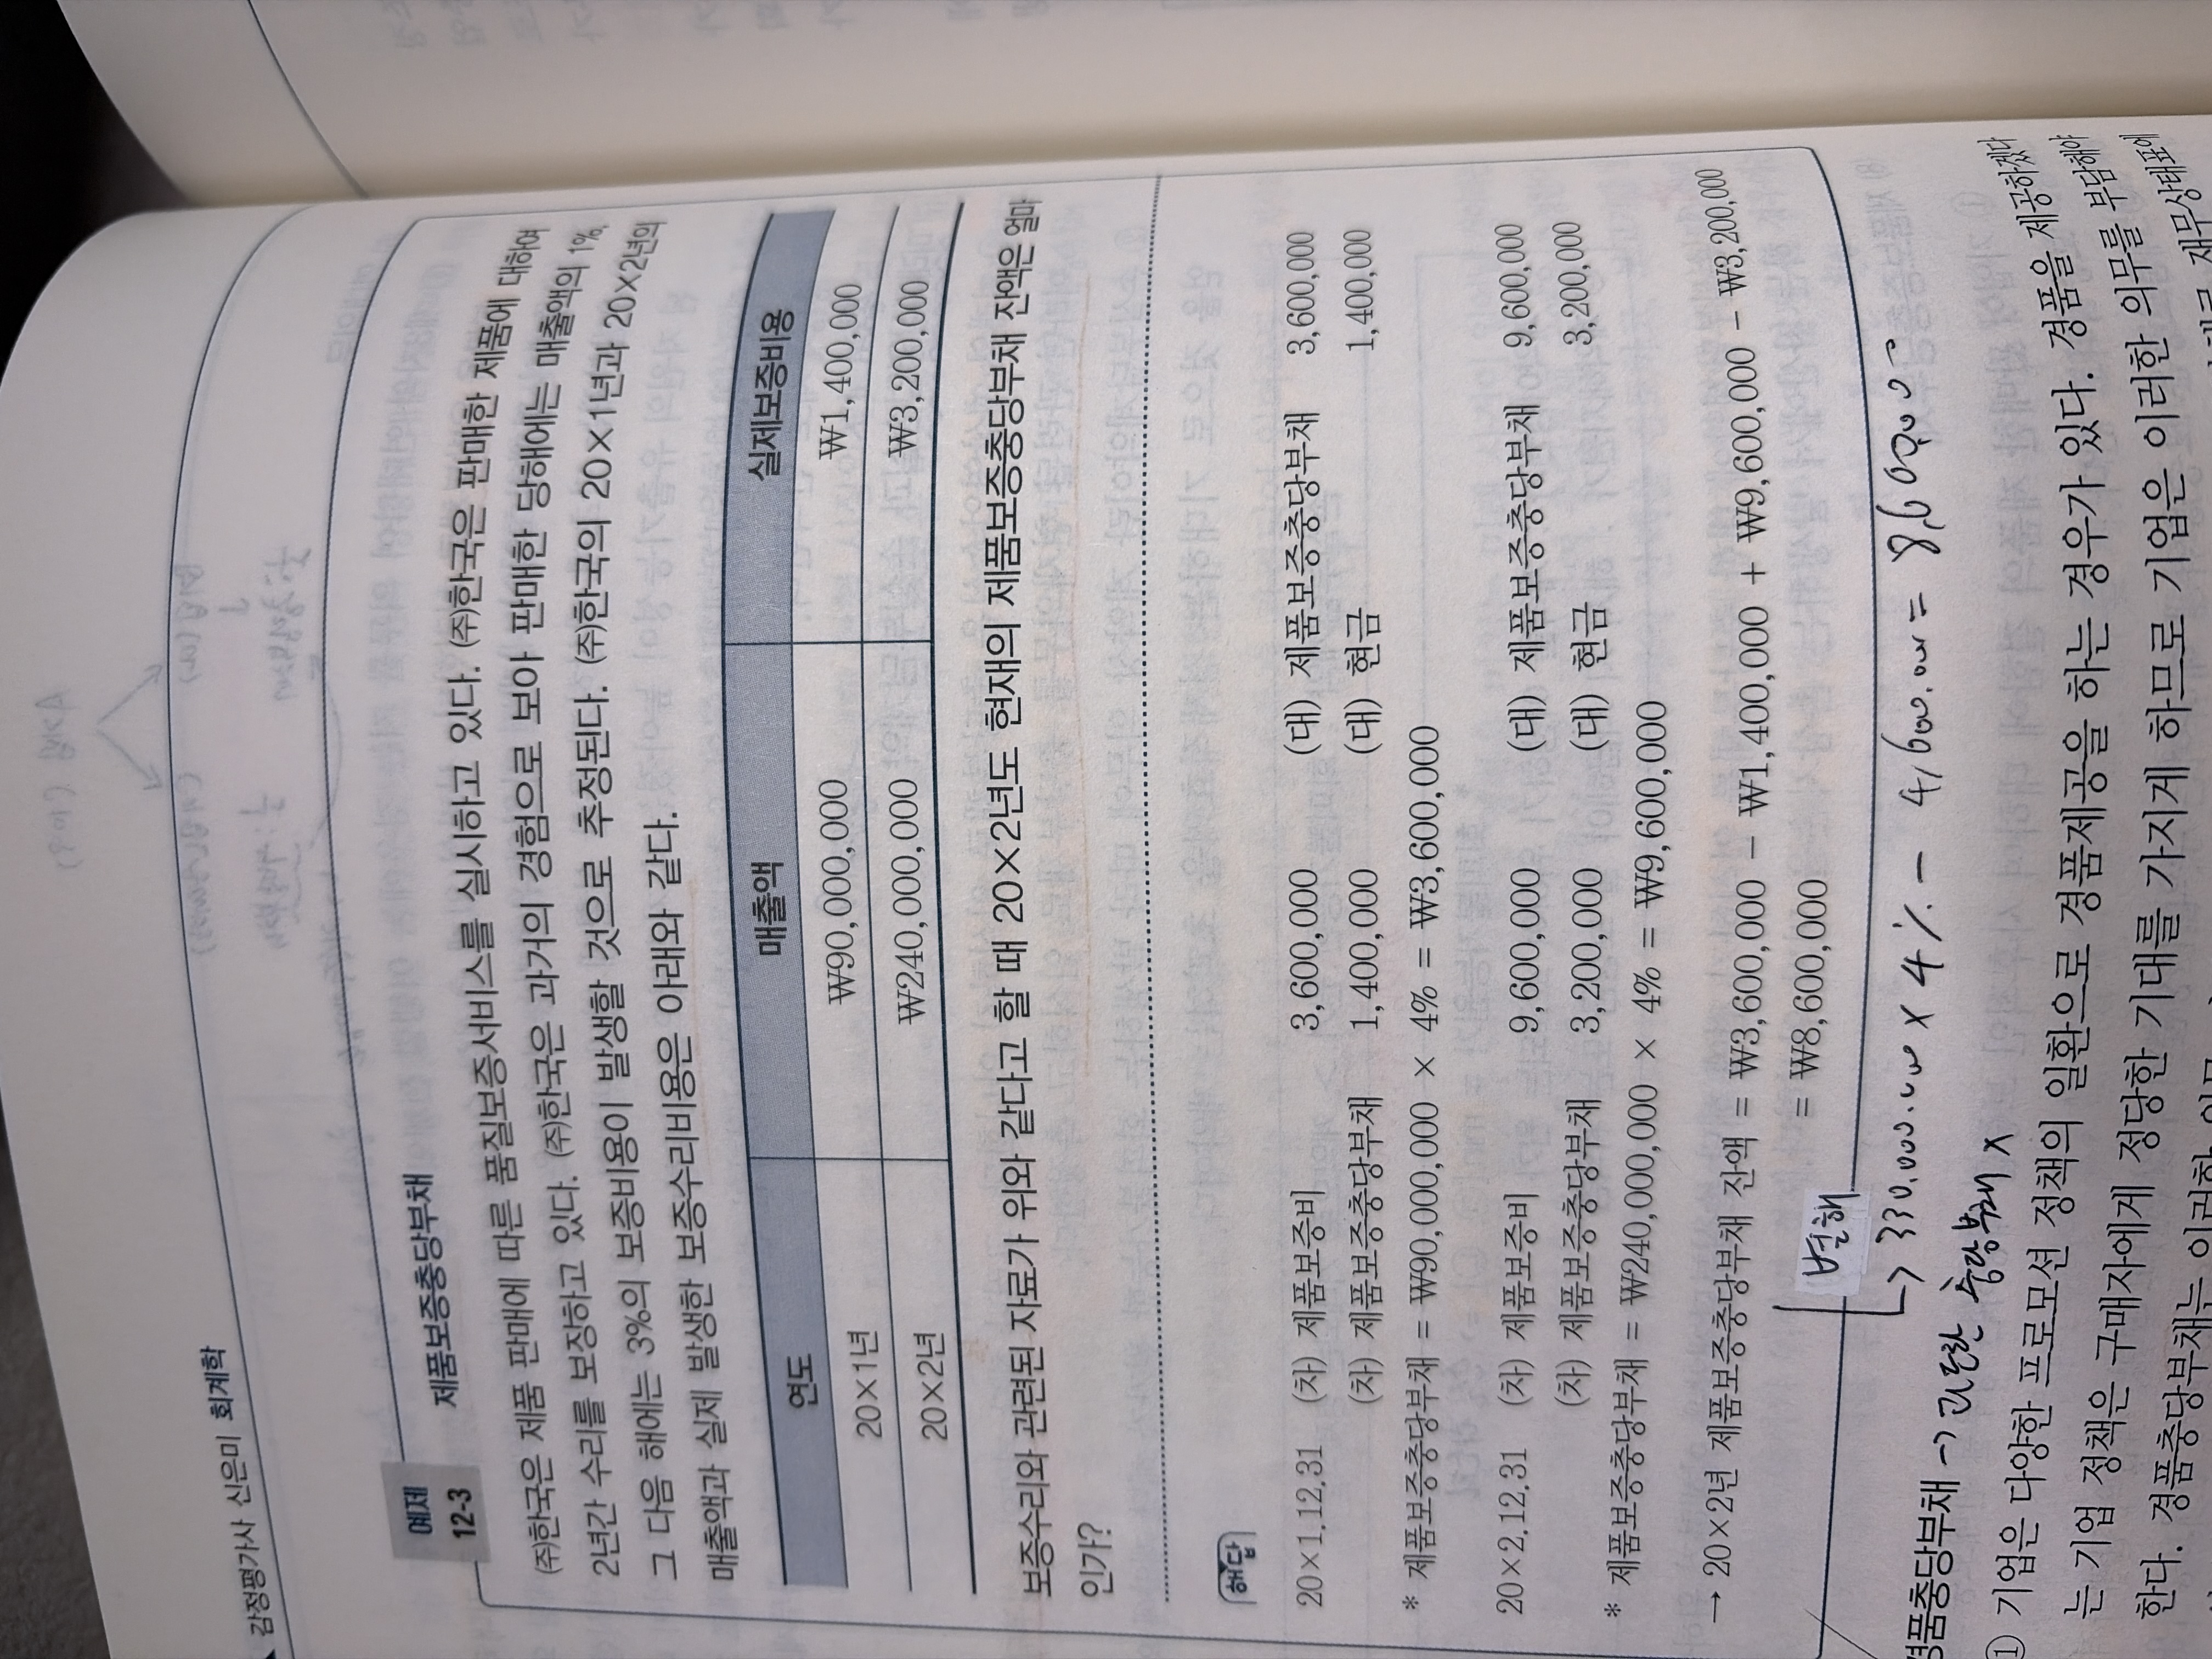 감정평가사 신은미 회계학
예제
12-3
제품보증충당부채
(주)한국은 제품 판매에 따른 품질보증서비스를 실시하고 있다. (주)한국은 판매한 제품에 대하여
2년간 수리를 보장하고 있다. (주)한국은 과거의 경험으로 보아 판매한 당해에는 매출액의 1%,
그 다음 해에는 3%의 보증비용이 발생할 것으로 추정된다. (주)한국의 20×1년과 20×2년의
매출액과 실제 발생한 보증수리비용은 아래와 같다.
연도 매출액 실제보증비용
20×1년 ₩90,000,000 ₩1,400,000
20×2년 ₩240,000,000 ₩3,200,000
보증수리와 관련된 자료가 위와 같다고 할 때 20×2년도 현재의 제품보증충당부채 잔액은 얼마
인가?
해답
20×1.12.31 (차) 제품보증비 3,600,000 (대) 제품보증충당부채 3,600,000
(차) 제품보증충당부채 1,400,000 (대) 현금 1,400,000
* 제품보증충당부채 = ₩90,000,000 × 4% = ₩3,600,000
20×2.12.31 (차) 제품보증비 9,600,000 (대) 제품보증충당부채 9,600,000
(차) 제품보증충당부채 3,200,000 (대) 현금 3,200,000
* 제품보증충당부채 = ₩240,000,000 × 4% = ₩9,600,000
→ 20×2년 제품보증충당부채 잔액 = ₩3,600,000 - ₩1,400,000 + ₩9,600,000 - ₩3,200,000
= ₩8,600,000
별해
→ 330.000.000 × 4% - 4,600.000 = 8,600,000
경품충당부채 → 관련 충당부채 X
① 기업은 다양한 프로모션 정책의 일환으로 경품제공을 하는 경우가 있다. 경품을 제공하겠다
는 기업 정책은 구매자에게 정당한 기대를 가지게 하므로 기업은 이러한 의무를 부담해야
한다. 경품충당부채는 이러한 의무 재무상태표에